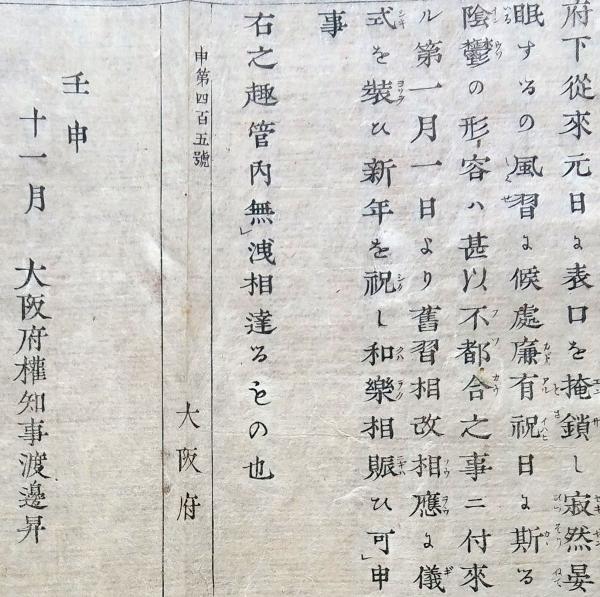 府下從來元日に表口を掩鎖し寂然晏
眠するの風習に候處廉有祝日に斯る
陰鬱の形容ハ甚以不都合之事ニ付來
ル第一月一日より舊習相改相應に儀
式を裝ひ新年を祝し和樂相賑ひ可申
事
右之趣管内無洩相達するもの也
申第四百五號
大阪府
壬申
十一月 大阪府權知事渡邊昇